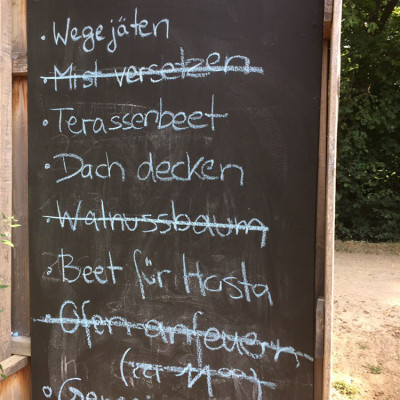 · Wege jäten
· Mist versetzen
· Terassenbeet
· Dach decken
· Walnussbaum
· Beet für Hosta
· Ofen anfeuern